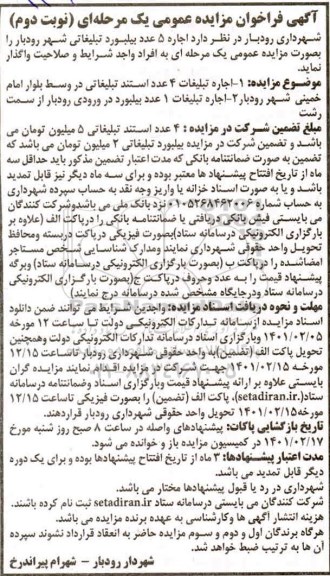 آگهی فراخوان مزایده عمومی یک مرحله‌ای (نوبت دوم)
شهرداری رودبار در نظر دارد اجاره ۵ عدد بیلبورد تبلیغاتی شهر رودبار را
بصورت مزایده عمومی یک مرحله ای به افراد واجد شرایط و صلاحیت واگذار
نماید.
موضوع مزایده: ۱-اجاره تبلیغات ۴ عدد استند تبلیغاتی در وسط بلوار امام
خمینی شهر رودبار۲-اجاره تبلیغات ۱ عدد بیلبورد در ورودی رودبار از سمت
رشت
مبلغ تضمین شرکت در مزایده : ۴ عدد استند تبلیغاتی ۵ میلیون تومان می
باشد و تضمین شرکت در مزایده بیلبورد تبلیغاتی ۲ میلیون تومان می باشد که
تضمین به صورت ضمانتنامه بانکی که مدت اعتبار تضمین مذکور باید حداقل سه
ماه از تاریخ افتتاح پیشنهاد ها معتبر بوده و برای سه ماه دیگر نیز قابل تمدید
باشد و یا به صورت اسناد خزانه یا واریز وجه نقد به حساب سپرده شهرداری
به حساب شماره ۰۱۰۵۲۶۸۴۶۲۰۰۶ نزد بانک ملی می باشدوشرکت کنندگان
می بایستی فیش بانکی دریافتی یا ضمانتنامه بانکی را درپاکت الف (علاوه بر
بارگزاری الکترونیکی درسامانه ستاد)بصورت فیزیکی درپاکت دربسته ومحافظ
تحویل واحد حقوقی شهرداری نمایند ومدارک شناسایی شخص مستاجر
امضاشده را درپاکت ب (بصورت بارگزاری الکترونیکی درسامانه ستاد) وبرگه
پیشنهاد قیمت را به عدد وحروف درپاکت ج(بصورت بارگزاری الکترونیکی
درسامانه ستاد ودرجایگاه مشخص شده درسامانه درج نمایند)
مهلت و نحوه دریافت اسناد مزایده: واجدین شرایط می توانند ضمن دانلود
اسناد مزایده ازسامانه تدارکات الکترونیکی دولت تا ساعت ۱۲ مورخه
۱۴۰۱/۰۲/۰۵ وبارگزاری اسناد درسامانه تدارکات الکترونیکی دولت وهمچنین
تحویل پاکت الف (تضمین)به واحد حقوقی شهرداری رودبار تا ساعت ۱۲/۱۵
مورخه ۱۴۰۱/۰۲/۱۵ جهت شرکت در مزایده اقدام نمایند مزایده گران
بایستی علاوه بر ارائه پیشنهاد قیمت وبارگزاری اسناد وضمانتنامه درسامانه
ستاد(setadiran.ir)، پاکت الف (تضمین) را بصورت فیزیکی تاساعت ۱۲/۱۵
مورخه ۱۴۰۱/۰۲/۱۵ تحویل واحد حقوقی شهرداری رودبار قراردهند.
تاریخ بازگشایی پاکات: پیشنهادهای واصله در ساعت ۸ صبح روز شنبه مورخ
۱۴۰۱/۰۲/۱۷ در کمیسیون مزایده باز و خوانده می شود.
مدت اعتبار پیشنهادها: ۳ ماه از تاریخ افتتاح پیشنهادها بوده و برای یک دوره
دیگر قابل تمدید می باشد.
شهرداری در رد یا قبول پیشنهادها مختار می باشد.
شرکت کنندگان می بایستی درسامانه ستاد setadiran.ir ثبت نام کرده باشند.
هزینه انتشار آگهی ها وکارشناسی به عهده برنده مزایده می باشد.
هرگاه برندگان اول و دوم و سوم مزایده حاضر به انعقاد قرارداد نشوند سپرده
آن ها به ترتیب ضبط خواهد شد.
شهردار رودبار – شهرام پیراندرخ